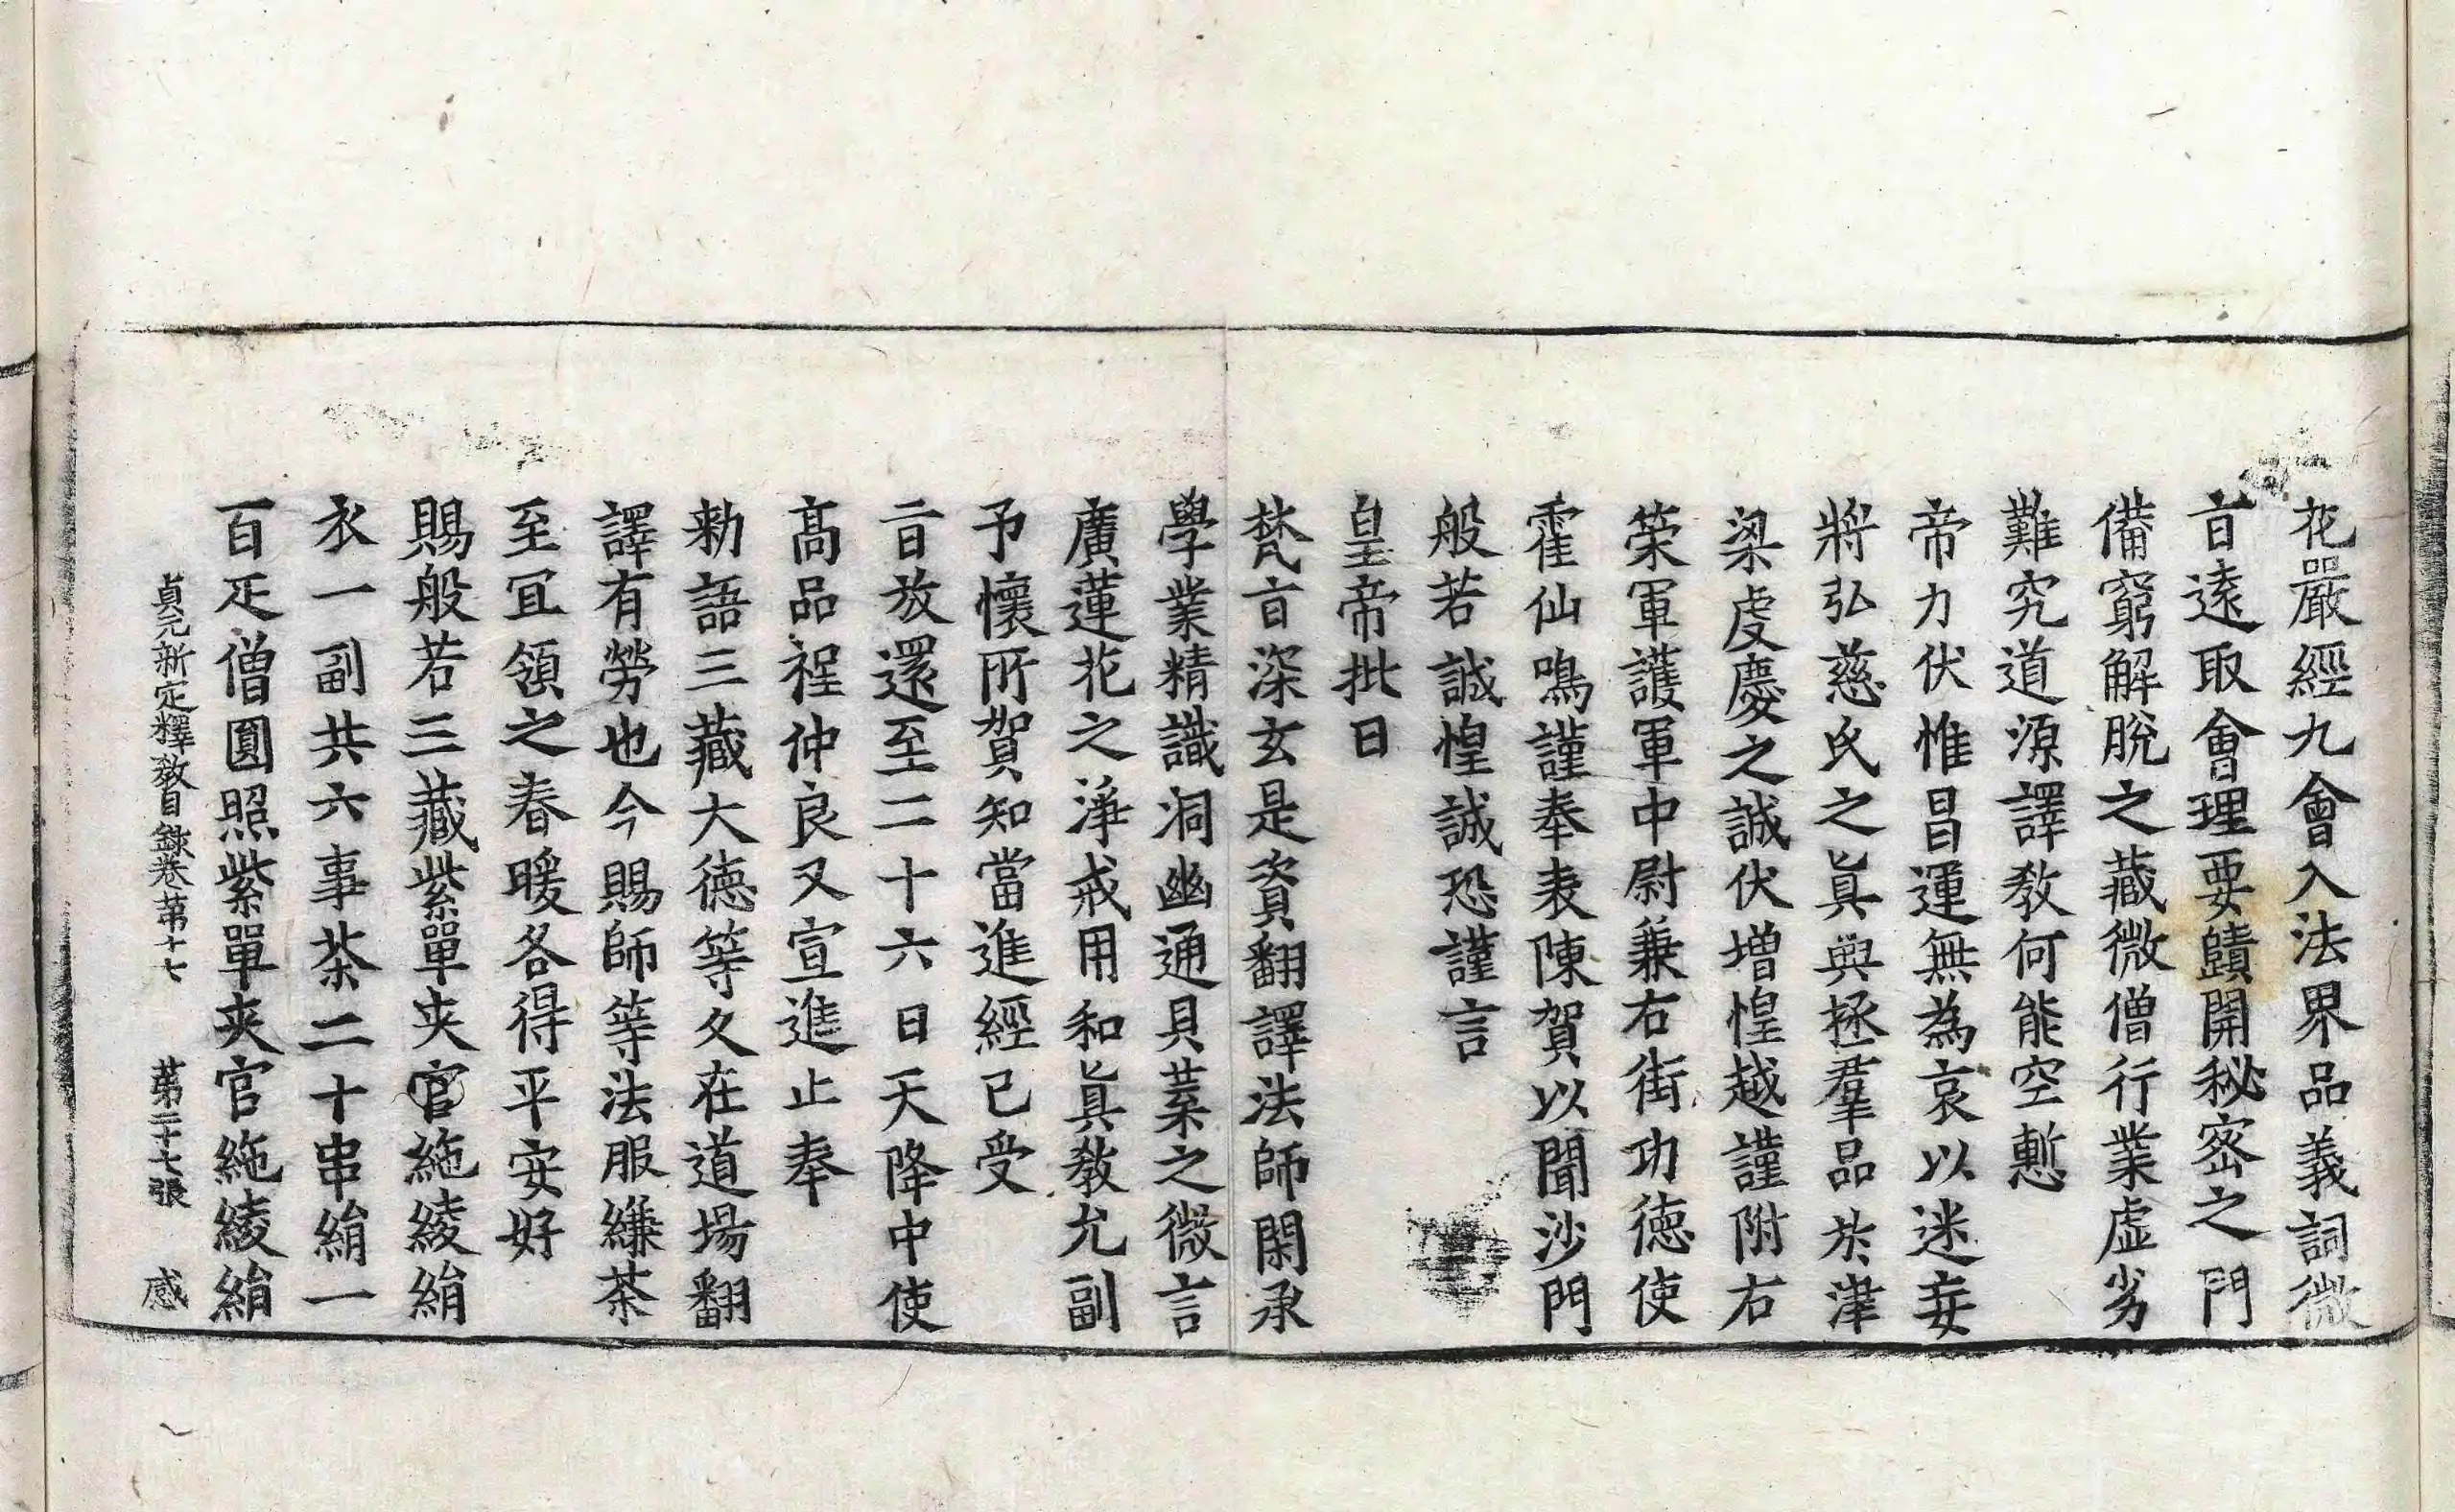 花嚴經九會入法界品義詞微
旨遠取會理要賾開秘密之門
備窮解脫之藏微僧行業虛劣
難究道源譯教何能空慙
帝力伏惟昌運無為哀以迷妄
將弘慈氏之眞典拯羣品於津
梁虔慶之誠伏增惶越謹附右
榮軍護軍中尉兼右街功德使
霍仙鳴謹奉表陳賀以聞沙門
般若誠惶誠恐謹言
皇帝批日
梵旨深玄是資翻譯法師閑承
學業精識洞幽通貝葉之微言
廣蓮花之淨戒用和眞教允副
予懷所賀知當進經已受
旨放還至二十六日天降中使
高品程仲良又宣進止奉
勑語三藏大德等久在道場翻
譯有勞也今賜師等法服縑茶
至冝領之春暖各得平安好
賜般若三藏紫單夾官絁綾絹
衣一副共六事茶二十串絹一
百疋僧圓照紫單夾官絁綾絹
貞元新定釋教目錄卷苐十七 苐二十七張 感